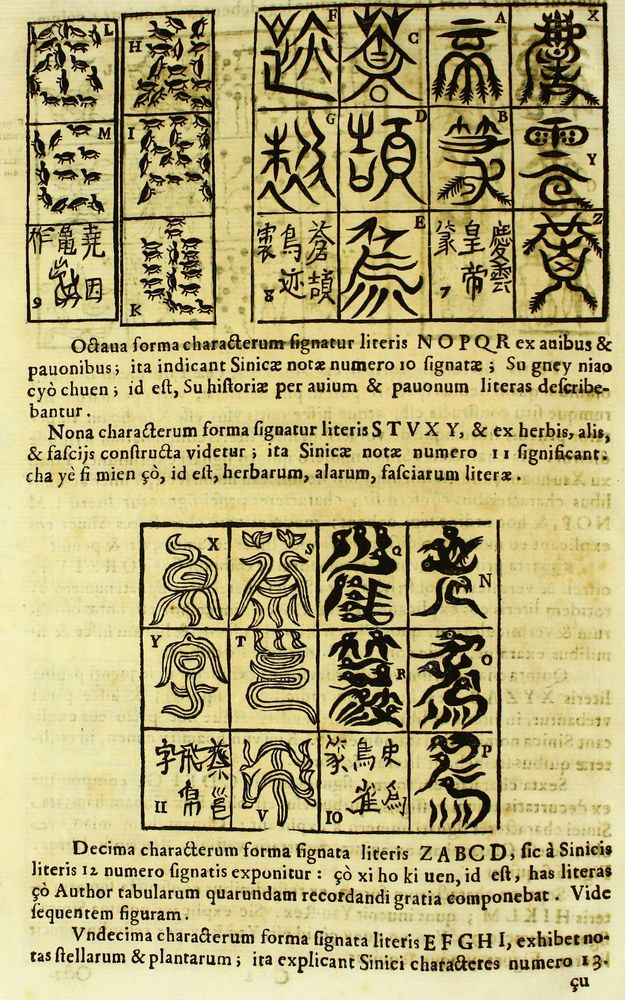 L H F C A X
M I G D B Y
堯因
龜
作
9
K
蒼頡
鳥迹
8
E
慶雲
皇帝
篆
7
Z
Octaua forma characterum signatur literis N O P Q R ex auibus &
pauonibus; ita indicant Sinicæ notæ numero 10 signatæ; Su gney niao
cyò chuen; id est, Su historiæ per auium & pauonum literas describe-
bantur.
Nona characterum forma signatur literis S T V X Y, & ex herbis, alis,
& fascijs constructa videtur; ita Sinicæ notæ numero 11 significant.
cha yè fi mien çò, id est, herbarum, alarum, fasciarum literæ.
X S Q N
Y T R O
蔡邕
飛帛
字
11
V
史為
鳥雀
篆
10
P
Decima characterum forma signata literis Z A B C D, sic à Sinicis
literis 12 numero signatis exponitur: çò xi ho ki uen, id est, has literas
çò Author tabularum quarundam recordandi gratia componebat. Vide
sequentem figuram.
Vndecima characterum forma signata literis E F G H I, exhibet no-
tas stellarum & plantarum; ita explicant Sinici characteres numero 13.
çu